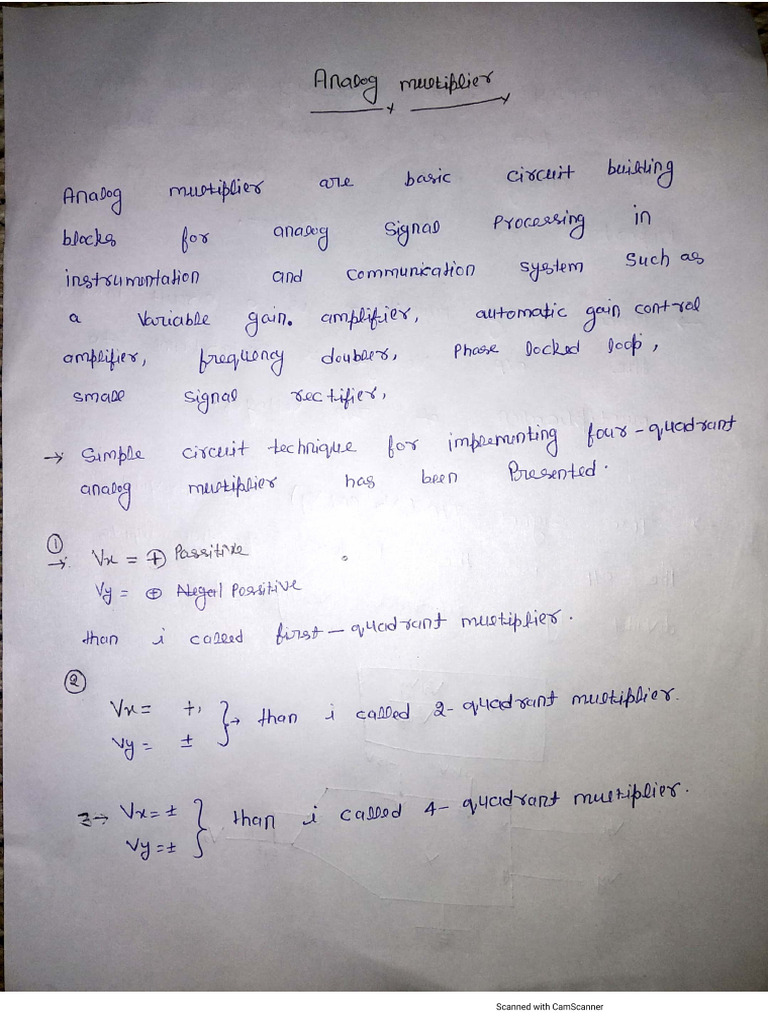 Analog multiplier
Analog multiplier are basic circuit building
blocks for analog signal Processing in
instrumentation and communication system such as
a variable gain. amplifier, automatic gain control
amplifier, frequency doubler, Phase locked loop,
small signal rectifier,
→ Simple circuit technique for implementing four-quadrant
analog multiplier has been Presented.
①
→ Vx = ⊕ Passitive
Vy = ⊕ Possitive
than i called first-quadrant multiplier.
②
Vx = +, } → than i called 2-quadrant multiplier.
Vy = ±
3→ Vx = ± } than i called 4-quadrant multiplier.
Vy = ±
Scanned with CamScanner